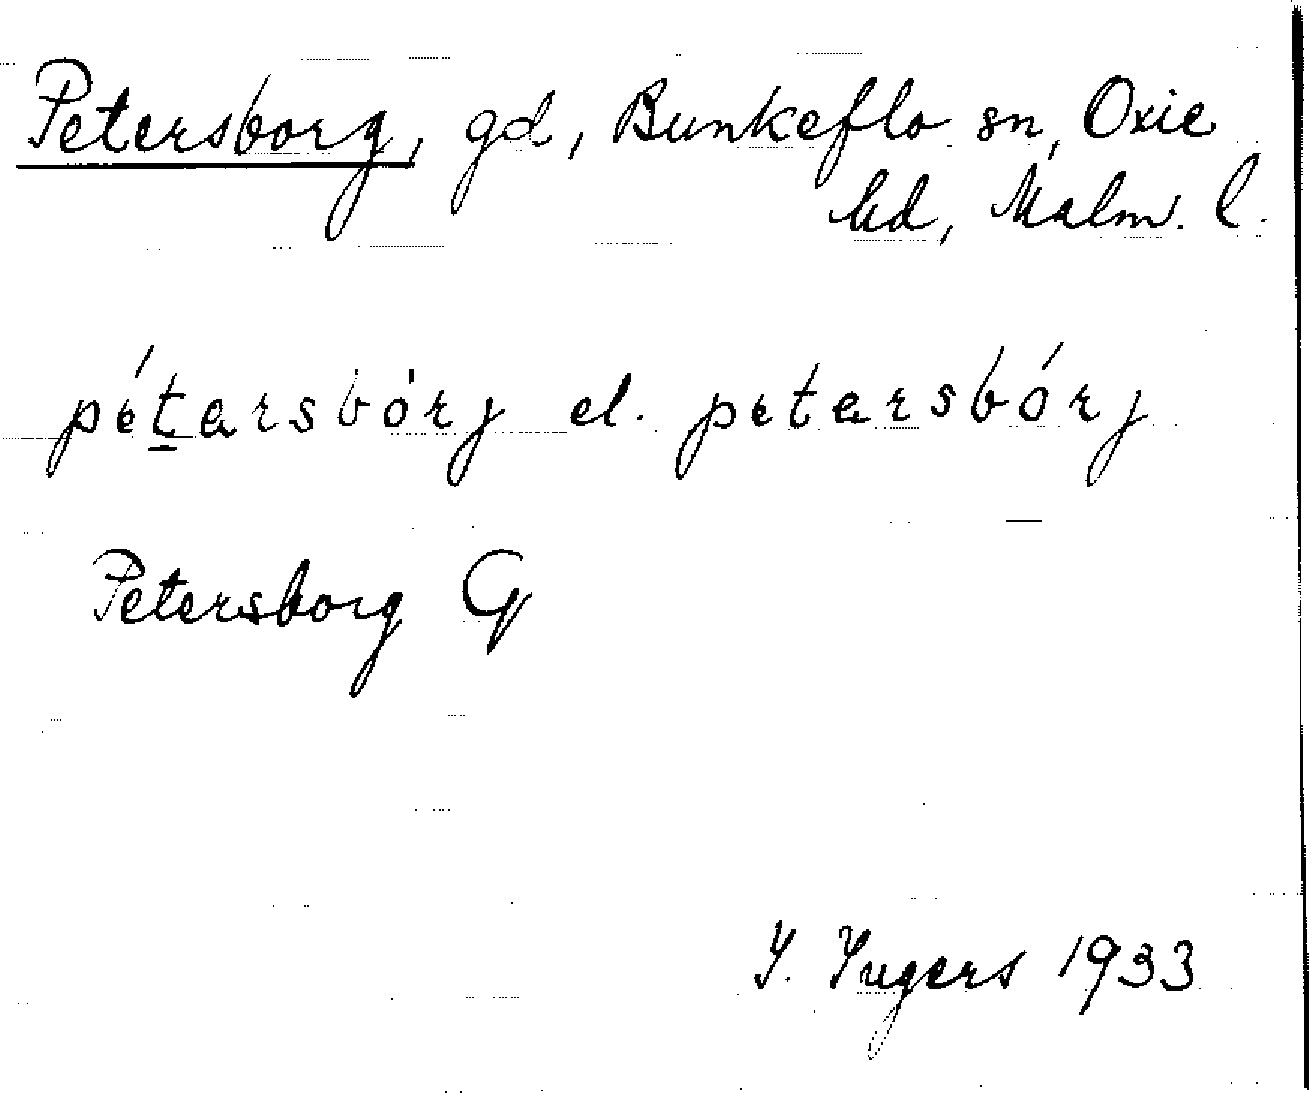 Petersborg, gd, Bunkeflo sn, Oxie
hd, Malm. l.
pétarsbórj el. petarsbórj
Petersborg G
I. Ingers 1933